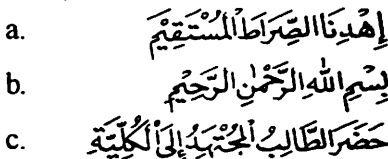 a. إِهْدِنَا الصِّرَاطَ الْمُسْتَقِيْمَ
b. بِسْمِ اللهِ الرَّحْمٰنِ الرَّحِيْمِ
c. حَضَرَ الطَّالِبُ الْمُجْتَهِدُ إِلَى الْكُلِّيَّةِ